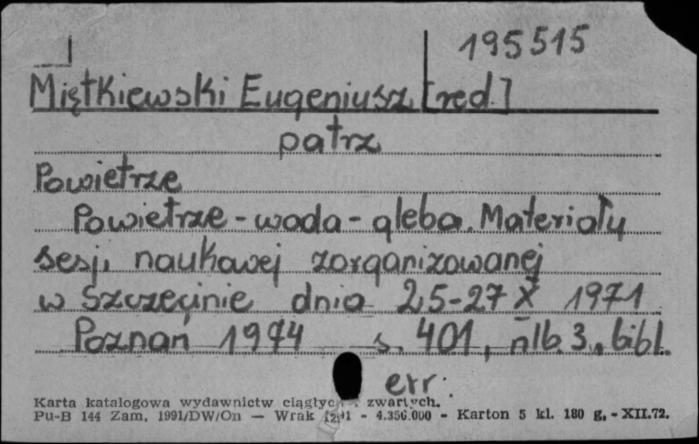 195515
Miętkiewski Eugeniusz [red.]
patrz
Powietrze
Powietrze - woda - gleba. Materiały
sesji naukowej zorganizowanej
w Szczecinie dnia 25-27 X 1971
Poznań 1974 s. 401, nlb. 3., bibl.
err.
Karta katalogowa wydawnictw ciągłych i zwartych.
Pu-B 144 Zam. 1991/DW/On — Wrak - 4.356.000 - Karton 5 kl. 180 g. - XII.72.